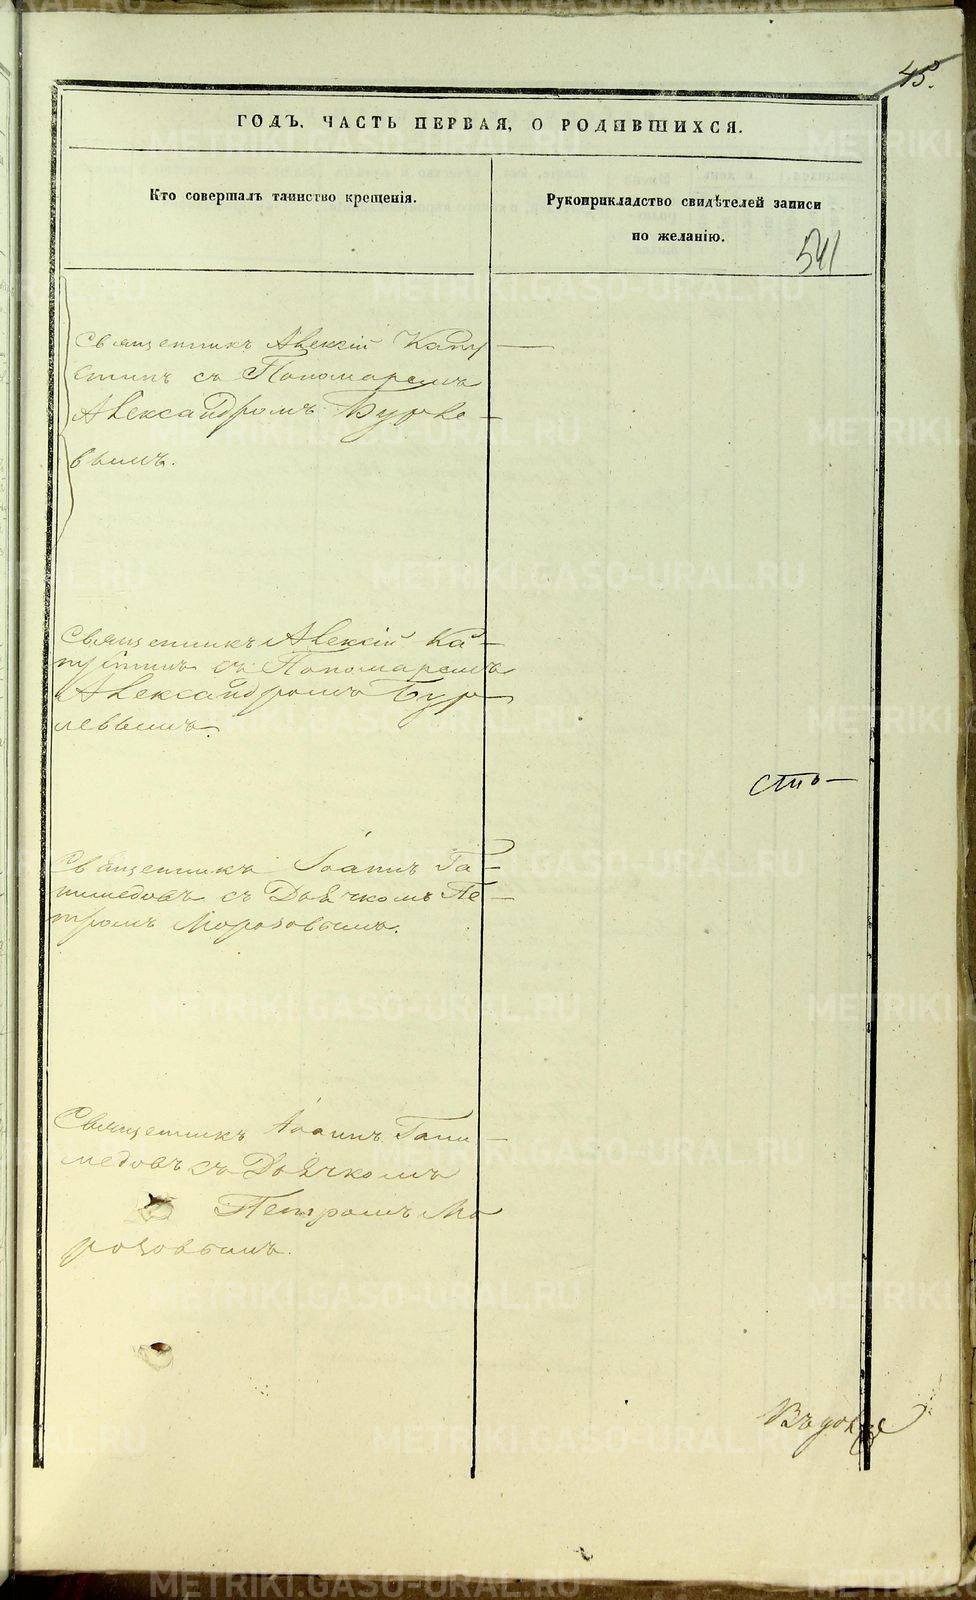 45.
ГОДЪ, ЧАСТЬ ПЕРВАЯ, О РОДИВШИХСЯ.
Кто совершалъ таинство крещенія.
Рукоприкладство свидѣтелей записи
по желанію.
541
Священникъ Алексій Капу
стинъ съ Пономаремъ
Александромъ Бурле-
вымъ.
Священникъ Алексій Ка-
пустинъ съ Пономаремъ
Александромъ Бур
левымъ.
сто
Священникъ Іоаннъ Га-
нимедовъ съ Дьячкомъ Пе-
тромъ Морозовымъ.
Священникъ Іоаннъ Гани-
медовъ съ Дьячкомъ
Петромъ Мо
розовымъ.
METRIKI.GASO-URAL.RU